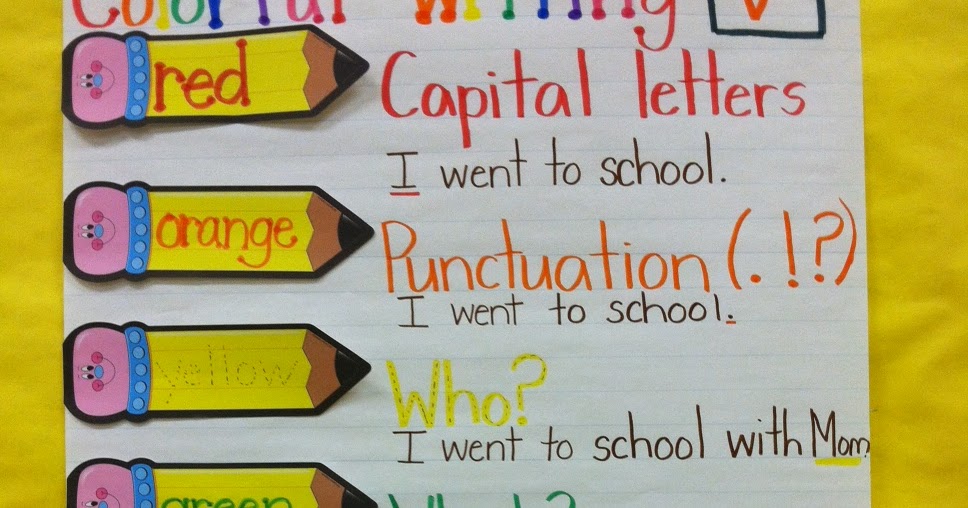 Colorful Writing
red Capital letters
I went to school.
orange Punctuation (.!?)
I went to school.
yellow Who?
I went to school with Mom
green